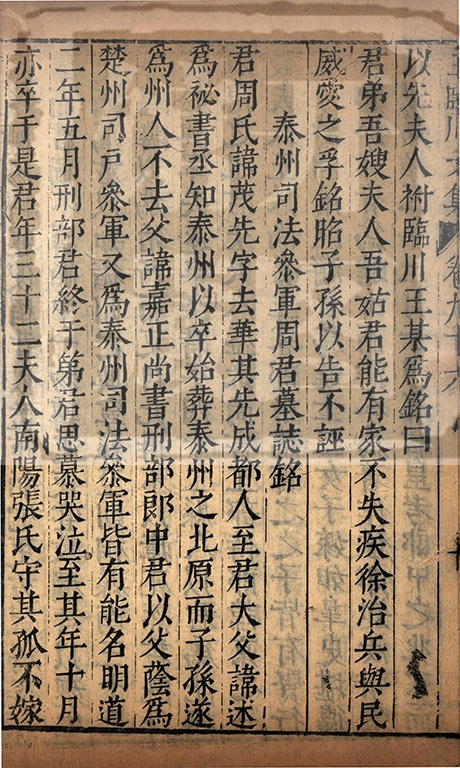 王臨川文集 卷九十六
以先夫人祔臨川王某爲銘曰
君弟吾嫂夫人吾姑君能有家不失疾徐治兵與民
威愛之孚銘昭子孫以告不誣
泰州司法叅軍周君墓誌銘
君周氏諱茂先字去華其先成都人至君大父諱述
爲祕書丞知泰州以卒始葬泰州之北原而子孫遂
爲州人不去父諱嘉正尚書刑部郎中君以父蔭爲
楚州司戶叅軍又爲泰州司法叅軍皆有能名明道
二年五月刑部君終于第君思慕哭泣至其年十月
亦卒于是君年三十二夫人南陽張氏守其孤不嫁